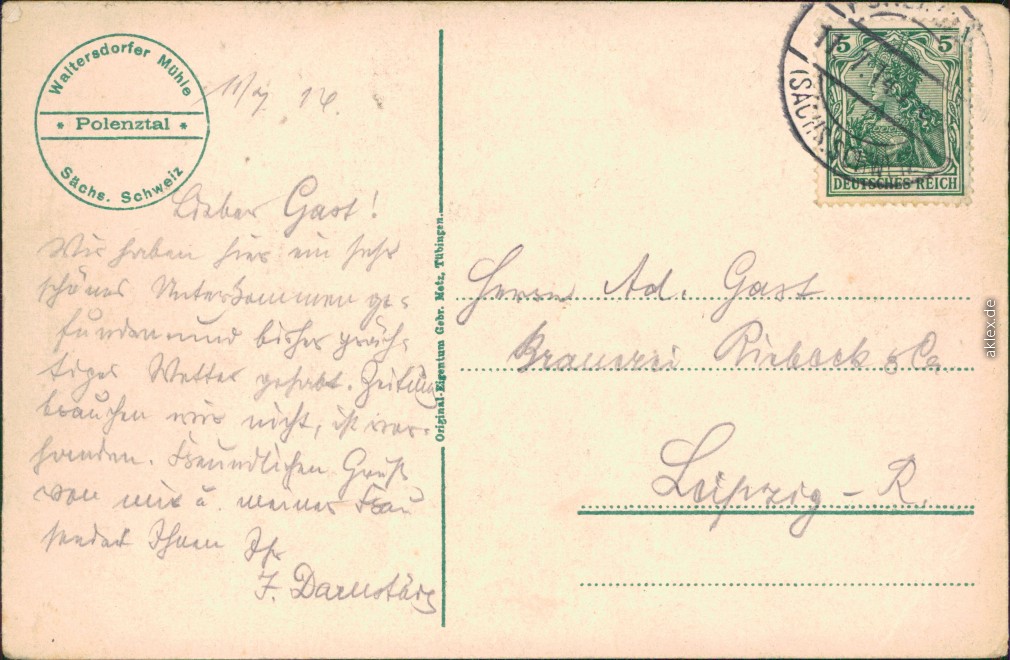 Waltersdorfer Mühle
* Polenztal *
Sächs. Schweiz
11/7 14.
Lieber Gast!
Wir haben hier ein sehr
schönes Unterkommen ge-
funden und bisher präch-
tiges Wetter gehabt. Zeitung
brauchen wir nicht, ist vor-
handen. Freundlichen Gruß
von mir u. meiner Frau
sendet Ihnen Ihr
Original-Eigentum Gebr. Metz, Tübingen.
5 5
DEUTSCHES REICH
(SÄCHS.
Herrn Ad. Gast
Brauerei Riebeck & Co.
Leipzig - R.
aklex.de